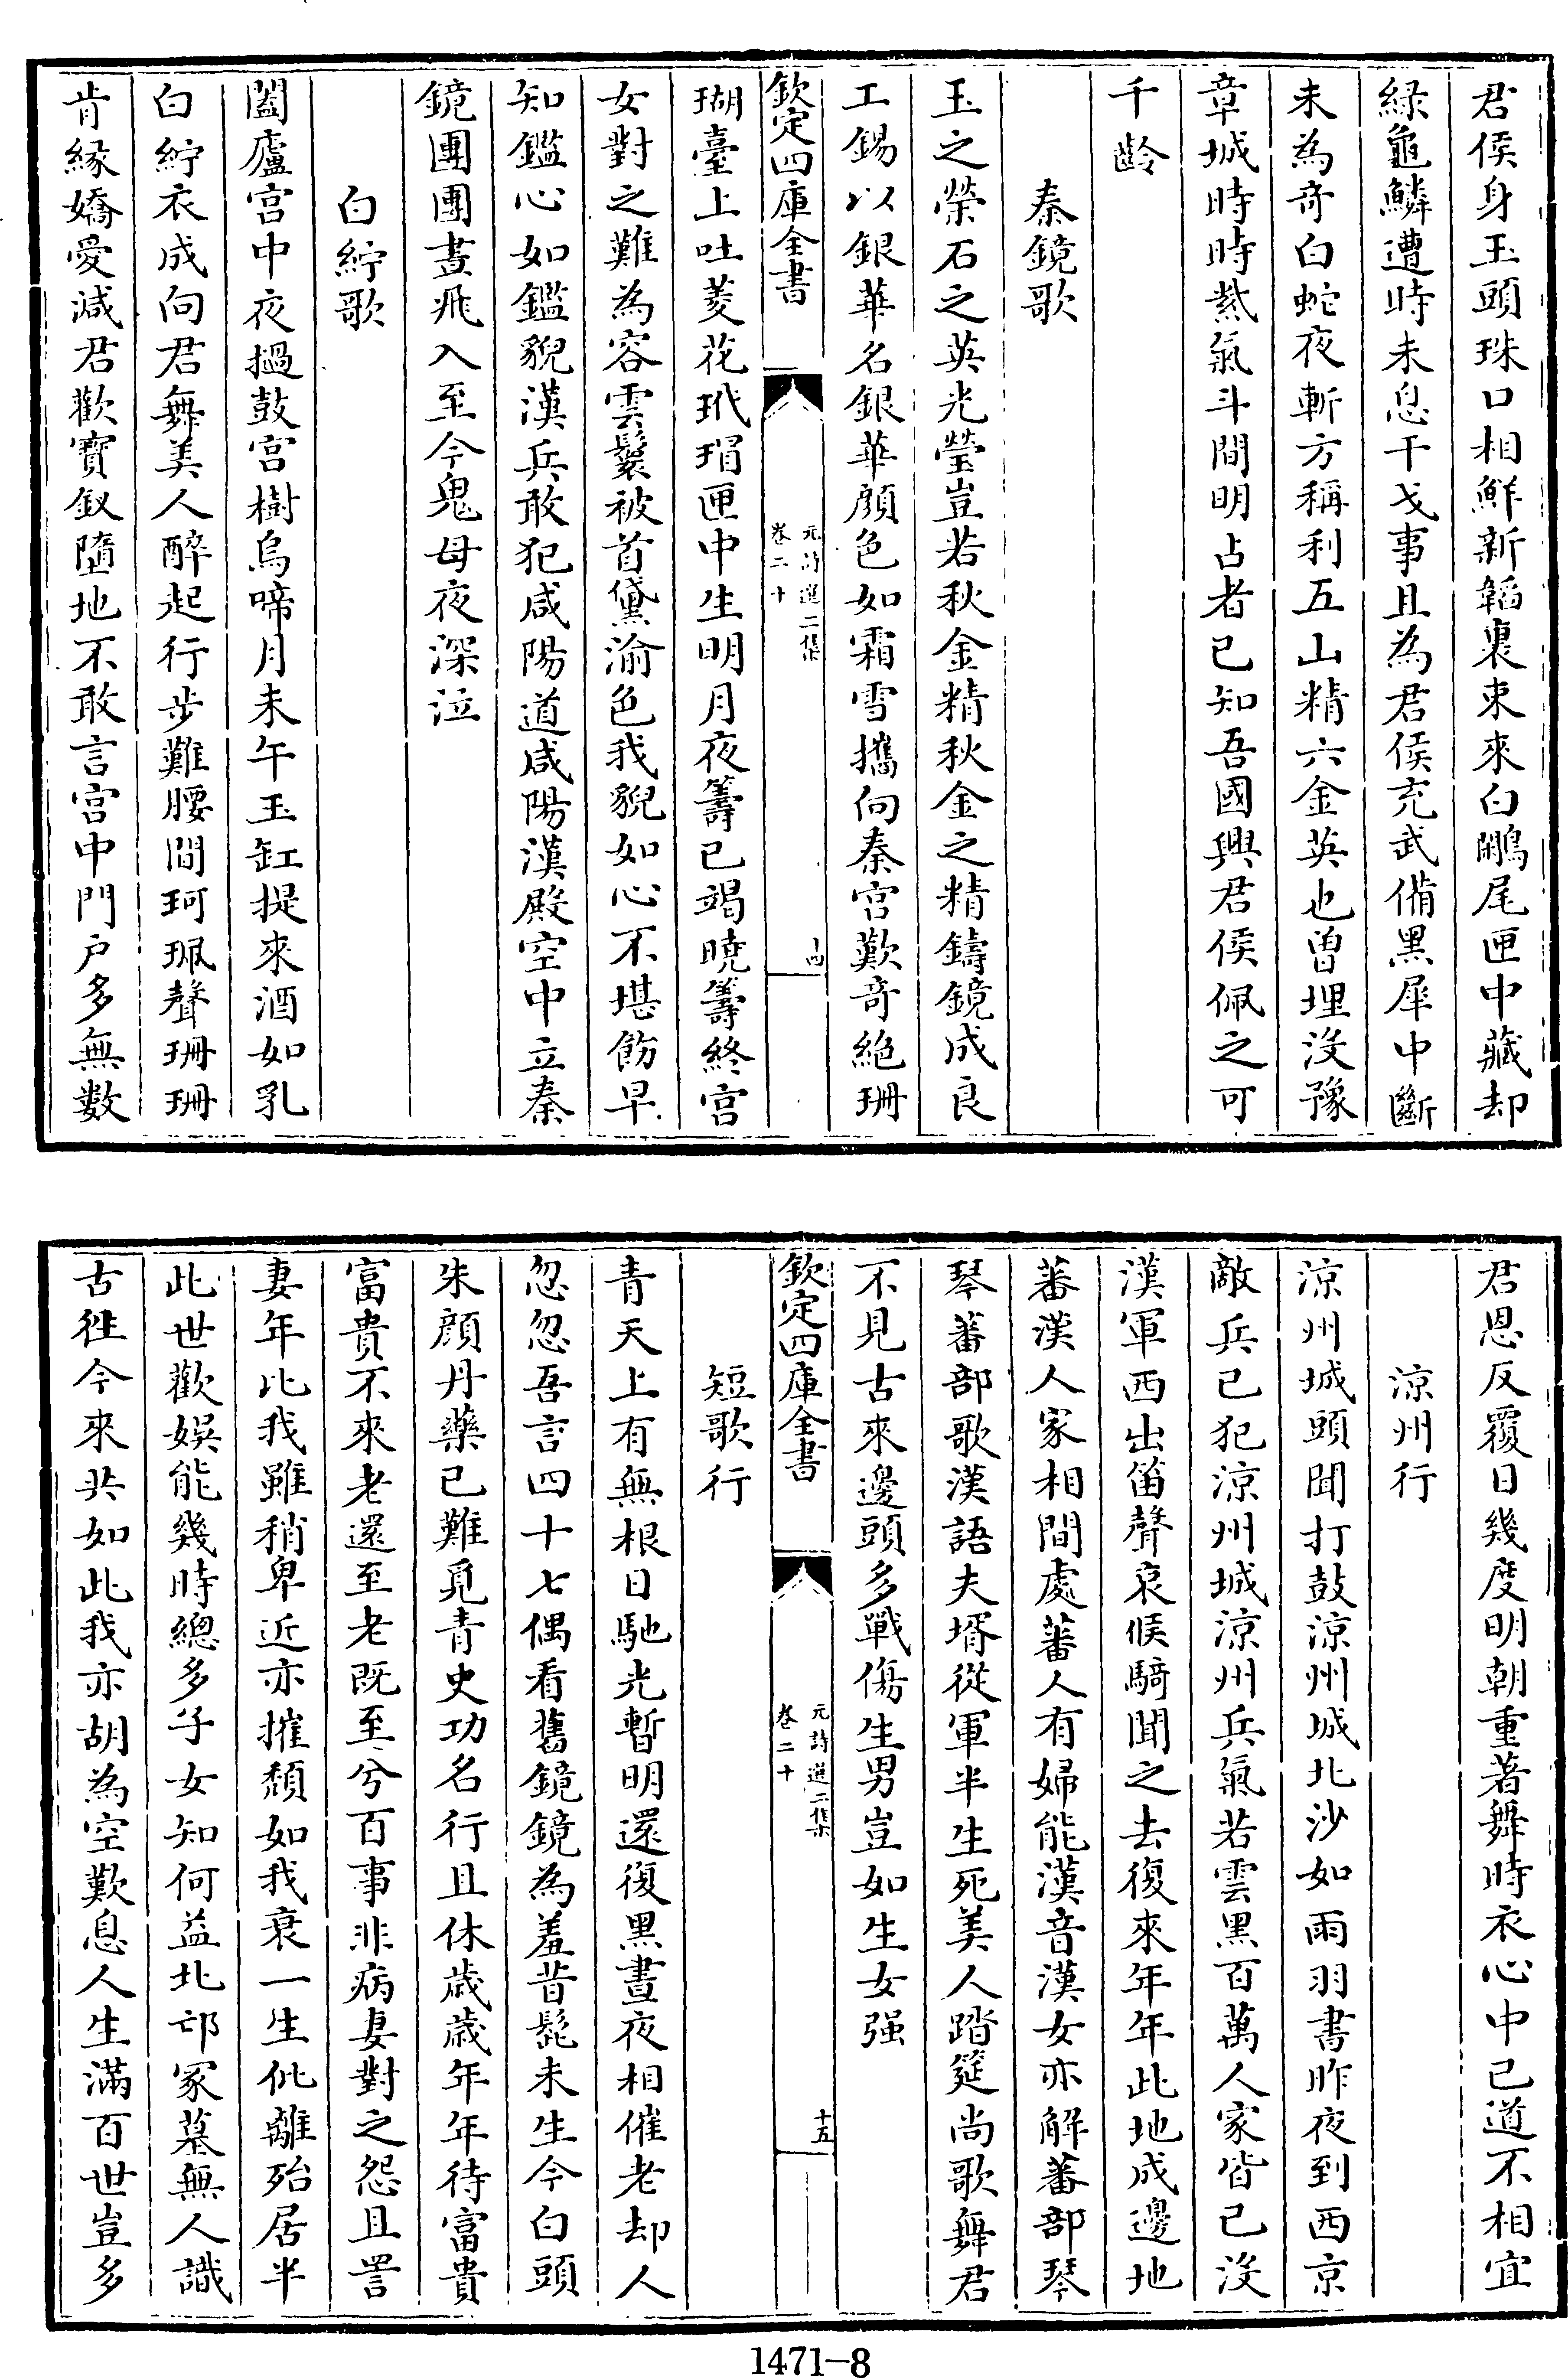 君侯身玉頭珠口相鮮新韜裏束來白鷳尾匣中藏却
緑龜鱗遭時未息干戈事且為君侯充武備黑犀中斷
未為奇白蛇夜斬方稱利五山精六金英也曽埋沒豫
章城時時紫氣斗間明占者已知吾國興君侯佩之可
千齡
秦鏡歌
玉之榮石之英光瑩豈若秋金精秋金之精鑄鏡成良
工錫以銀華名銀華顔色如霜雪攜向秦宫歎奇絶珊
欽定四庫全書
元詩選二集
卷二十
十四
瑚臺上吐菱花玳瑁匣中生明月夜籌已竭曉籌終宫
女對之難為容雲鬟被首黛渝色我貌如心不堪飭早
知鑑心如鑑貌漢兵敢犯咸陽道咸陽漢殿空中立秦
鏡團團晝飛入至今鬼母夜深泣
白紵歌
闔廬宫中夜撾鼓宫樹烏啼月未午玉缸提來酒如乳
白紵衣成向君舞美人醉起行步難腰間珂珮聲珊珊
肯緣嬌愛減君歡寳釵墮地不敢言宫中門户多無數
君恩反覆日幾度明朝重著舞時衣心中已道不相宜
涼州行
涼州城頭聞打鼓涼州城北沙如雨羽書昨夜到西京
敵兵已犯涼州城涼州兵氣若雲黑百萬人家皆已沒
漢軍西出笛聲哀候騎聞之去復來年年此地成邊地
蕃漢人家相間處蕃人有婦能漢音漢女亦解蕃部琴
琴蕃部歌漢語夫壻從軍半生死美人踏筵尚歌舞君
不見古來邊頭多戰傷生男豈如生女强
欽定四庫全書
元詩選二集
卷二十
十五
短歌行
青天上有無根日馳光暫明還復黑晝夜相催老却人
忽忽吾言四十七偶看舊鏡鏡為羞昔髭未生今白頭
朱顔丹藥已難覓青史功名行且休歳歳年年待富貴
富貴不來老還至老既至兮百事非病妻對之怨且詈
妻年比我雖稍卑近亦摧頽如我衰一生仳離殆居半
此世歡娱能幾時總多子女知何益北邙冢墓無人識
古徃今來共如此我亦胡為空歎息人生滿百世豈多
1471-8